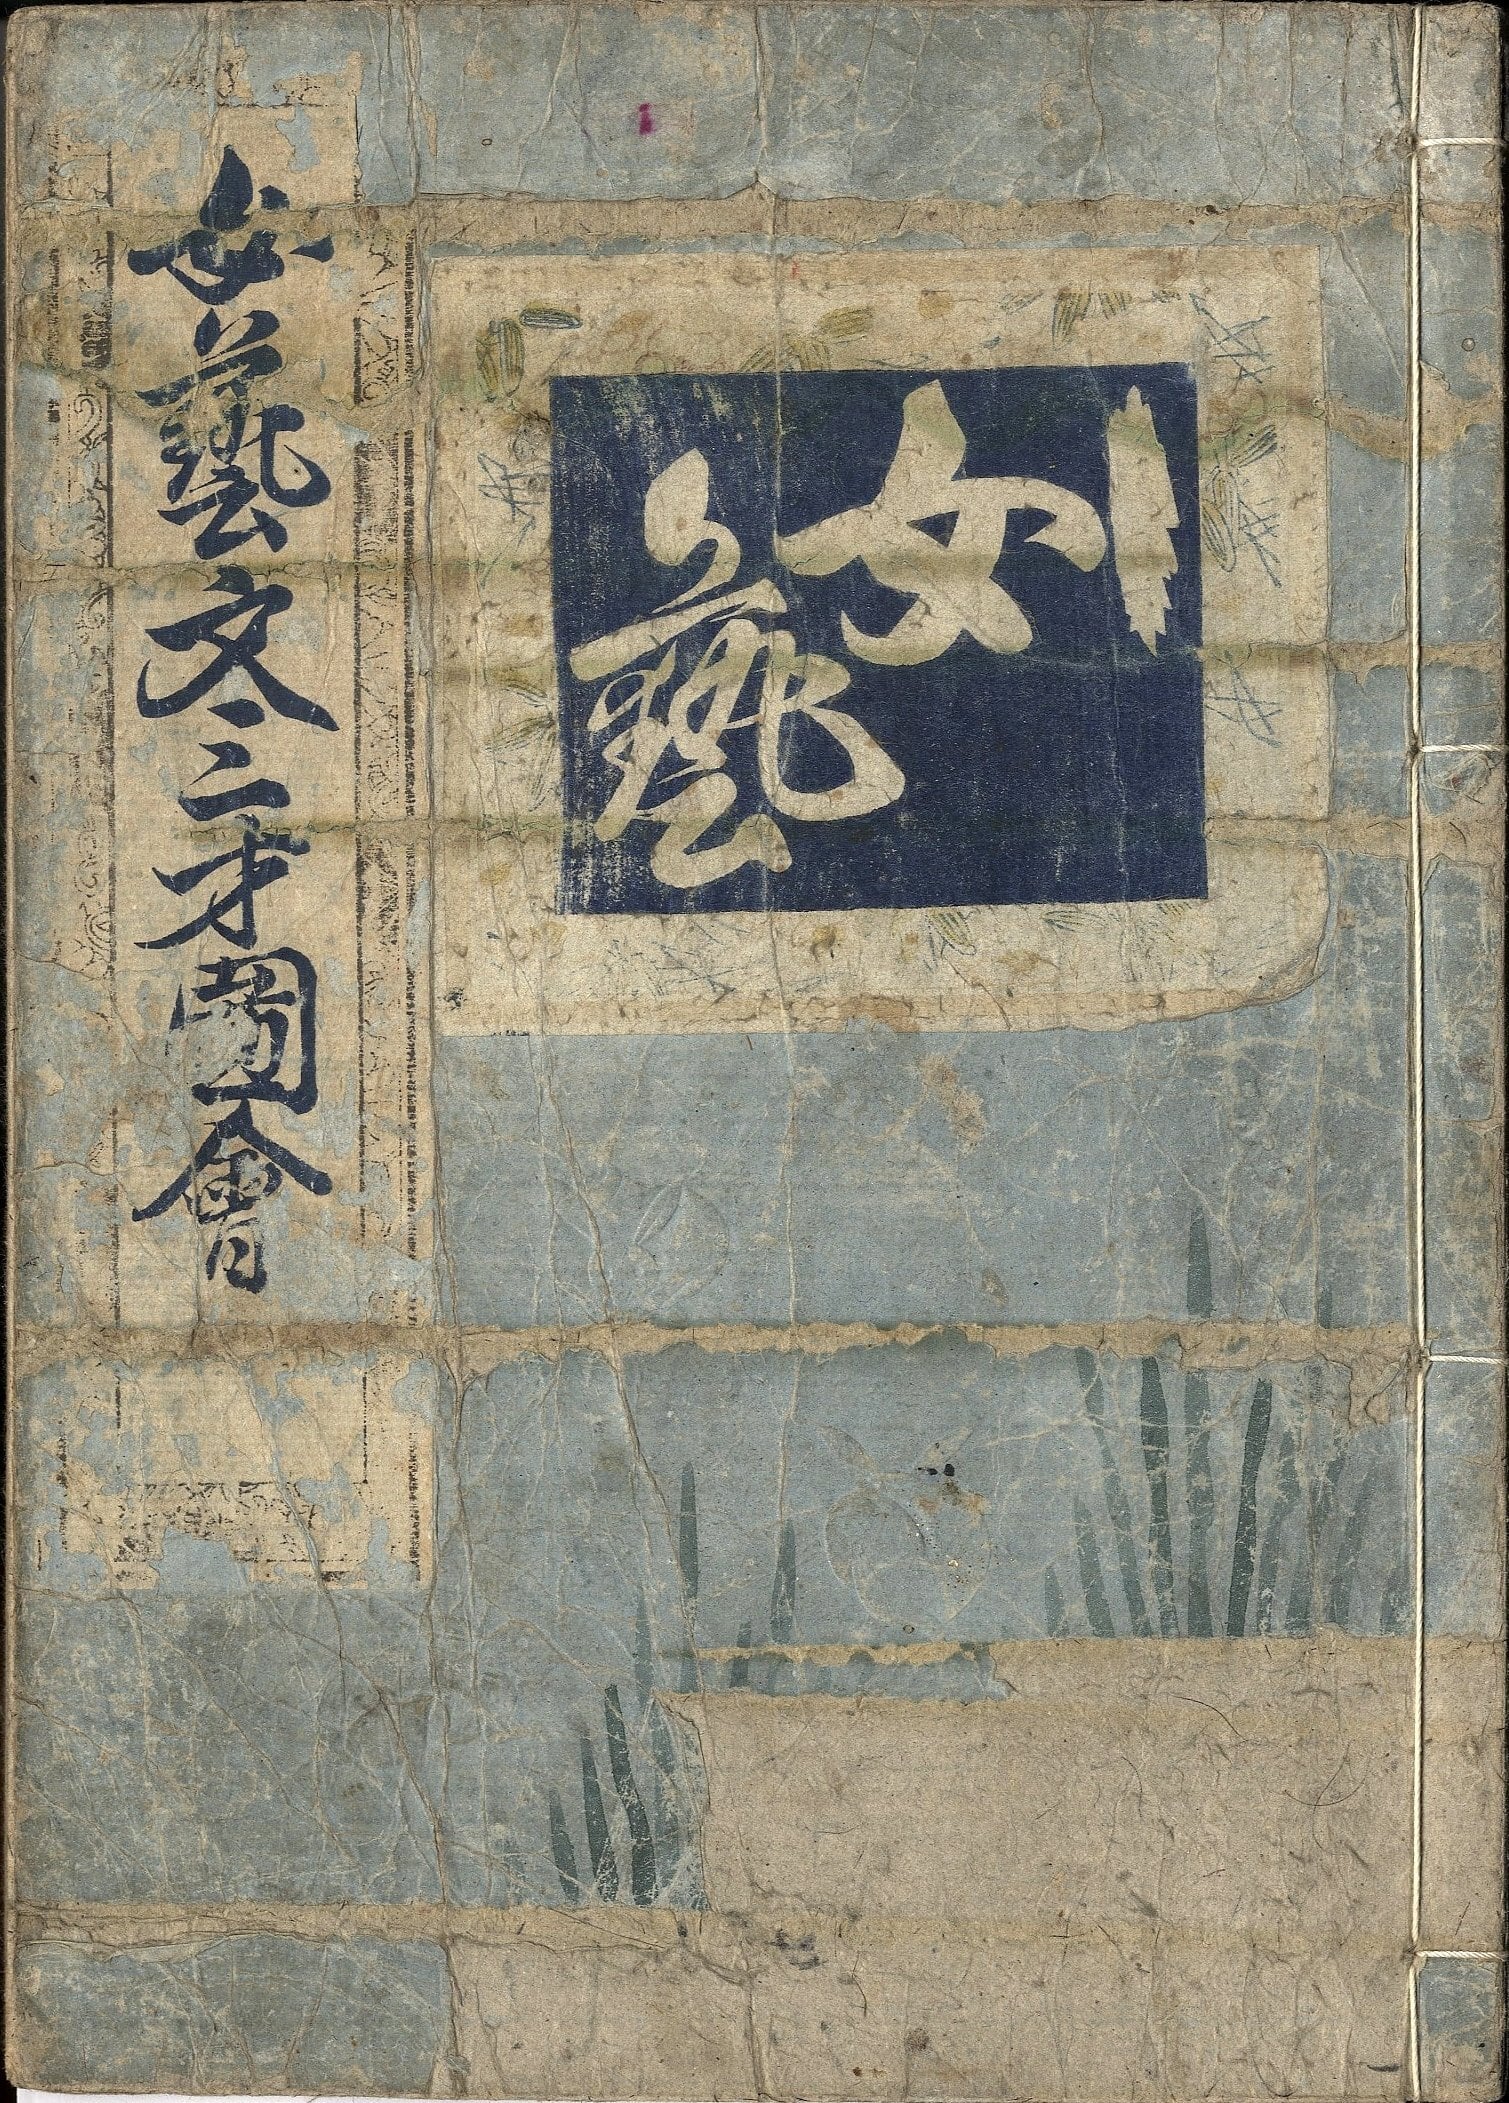 女藝
女藝文三才圖會